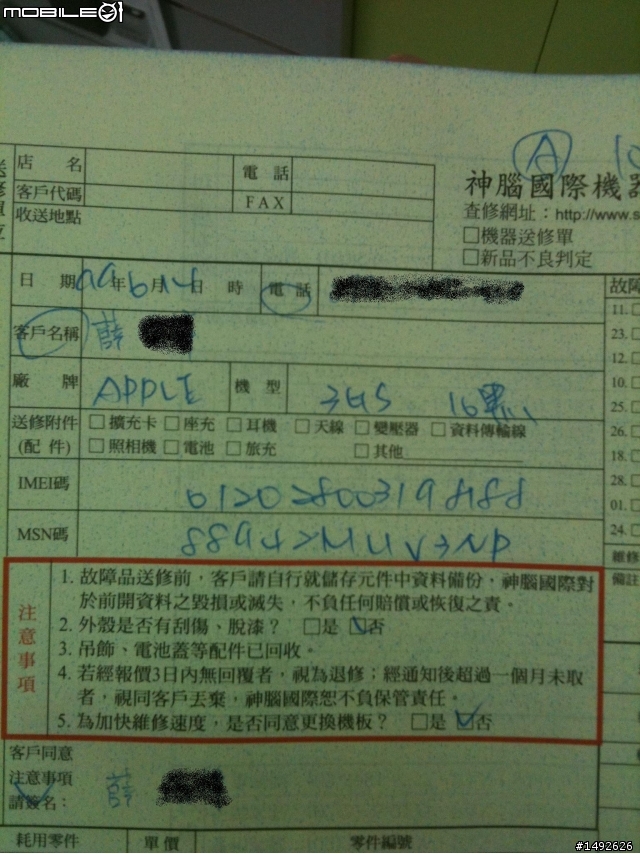 MOBILE01
A 10
店 名
電 話
客戶代碼
FAX
收送地點
神腦國際機器
查修網址：http://www.s
□機器送修單
□新品不良判定
日 期 99年6月14日 時 電 話
客戶名稱 薛
廠 牌 APPLE 機 型 3GS 16黑
送修附件 □擴充卡 □座充 □耳機 □天線 □變壓器 □資料傳輸線
(配 件) □照相機 □電池 □旅充 □其他
IMEI碼
MSN碼
注意事項
1. 故障品送修前，客戶請自行就儲存元件中資料備份，神腦國際對
於前開資料之毀損或滅失，不負任何賠償或恢復之責。
2. 外殼是否有刮傷、脫漆？ □是 ☑否
3. 吊飾、電池蓋等配件已回收。
4. 若經報價3日內無回覆者，視為退修；經通知後超過一個月未取
者，視同客戶丟棄，神腦國際恕不負保管責任。
5. 為加快維修速度，是否同意更換機板？ □是 ☑否
客戶同意
注意事項
請簽名： 薛
耗用零件 單 價 零件編號
故障
11. □
23. □
12. □
10. □
25. □
26. □
18. □
28. □
01. □
24. □
維修
備註
#1492626